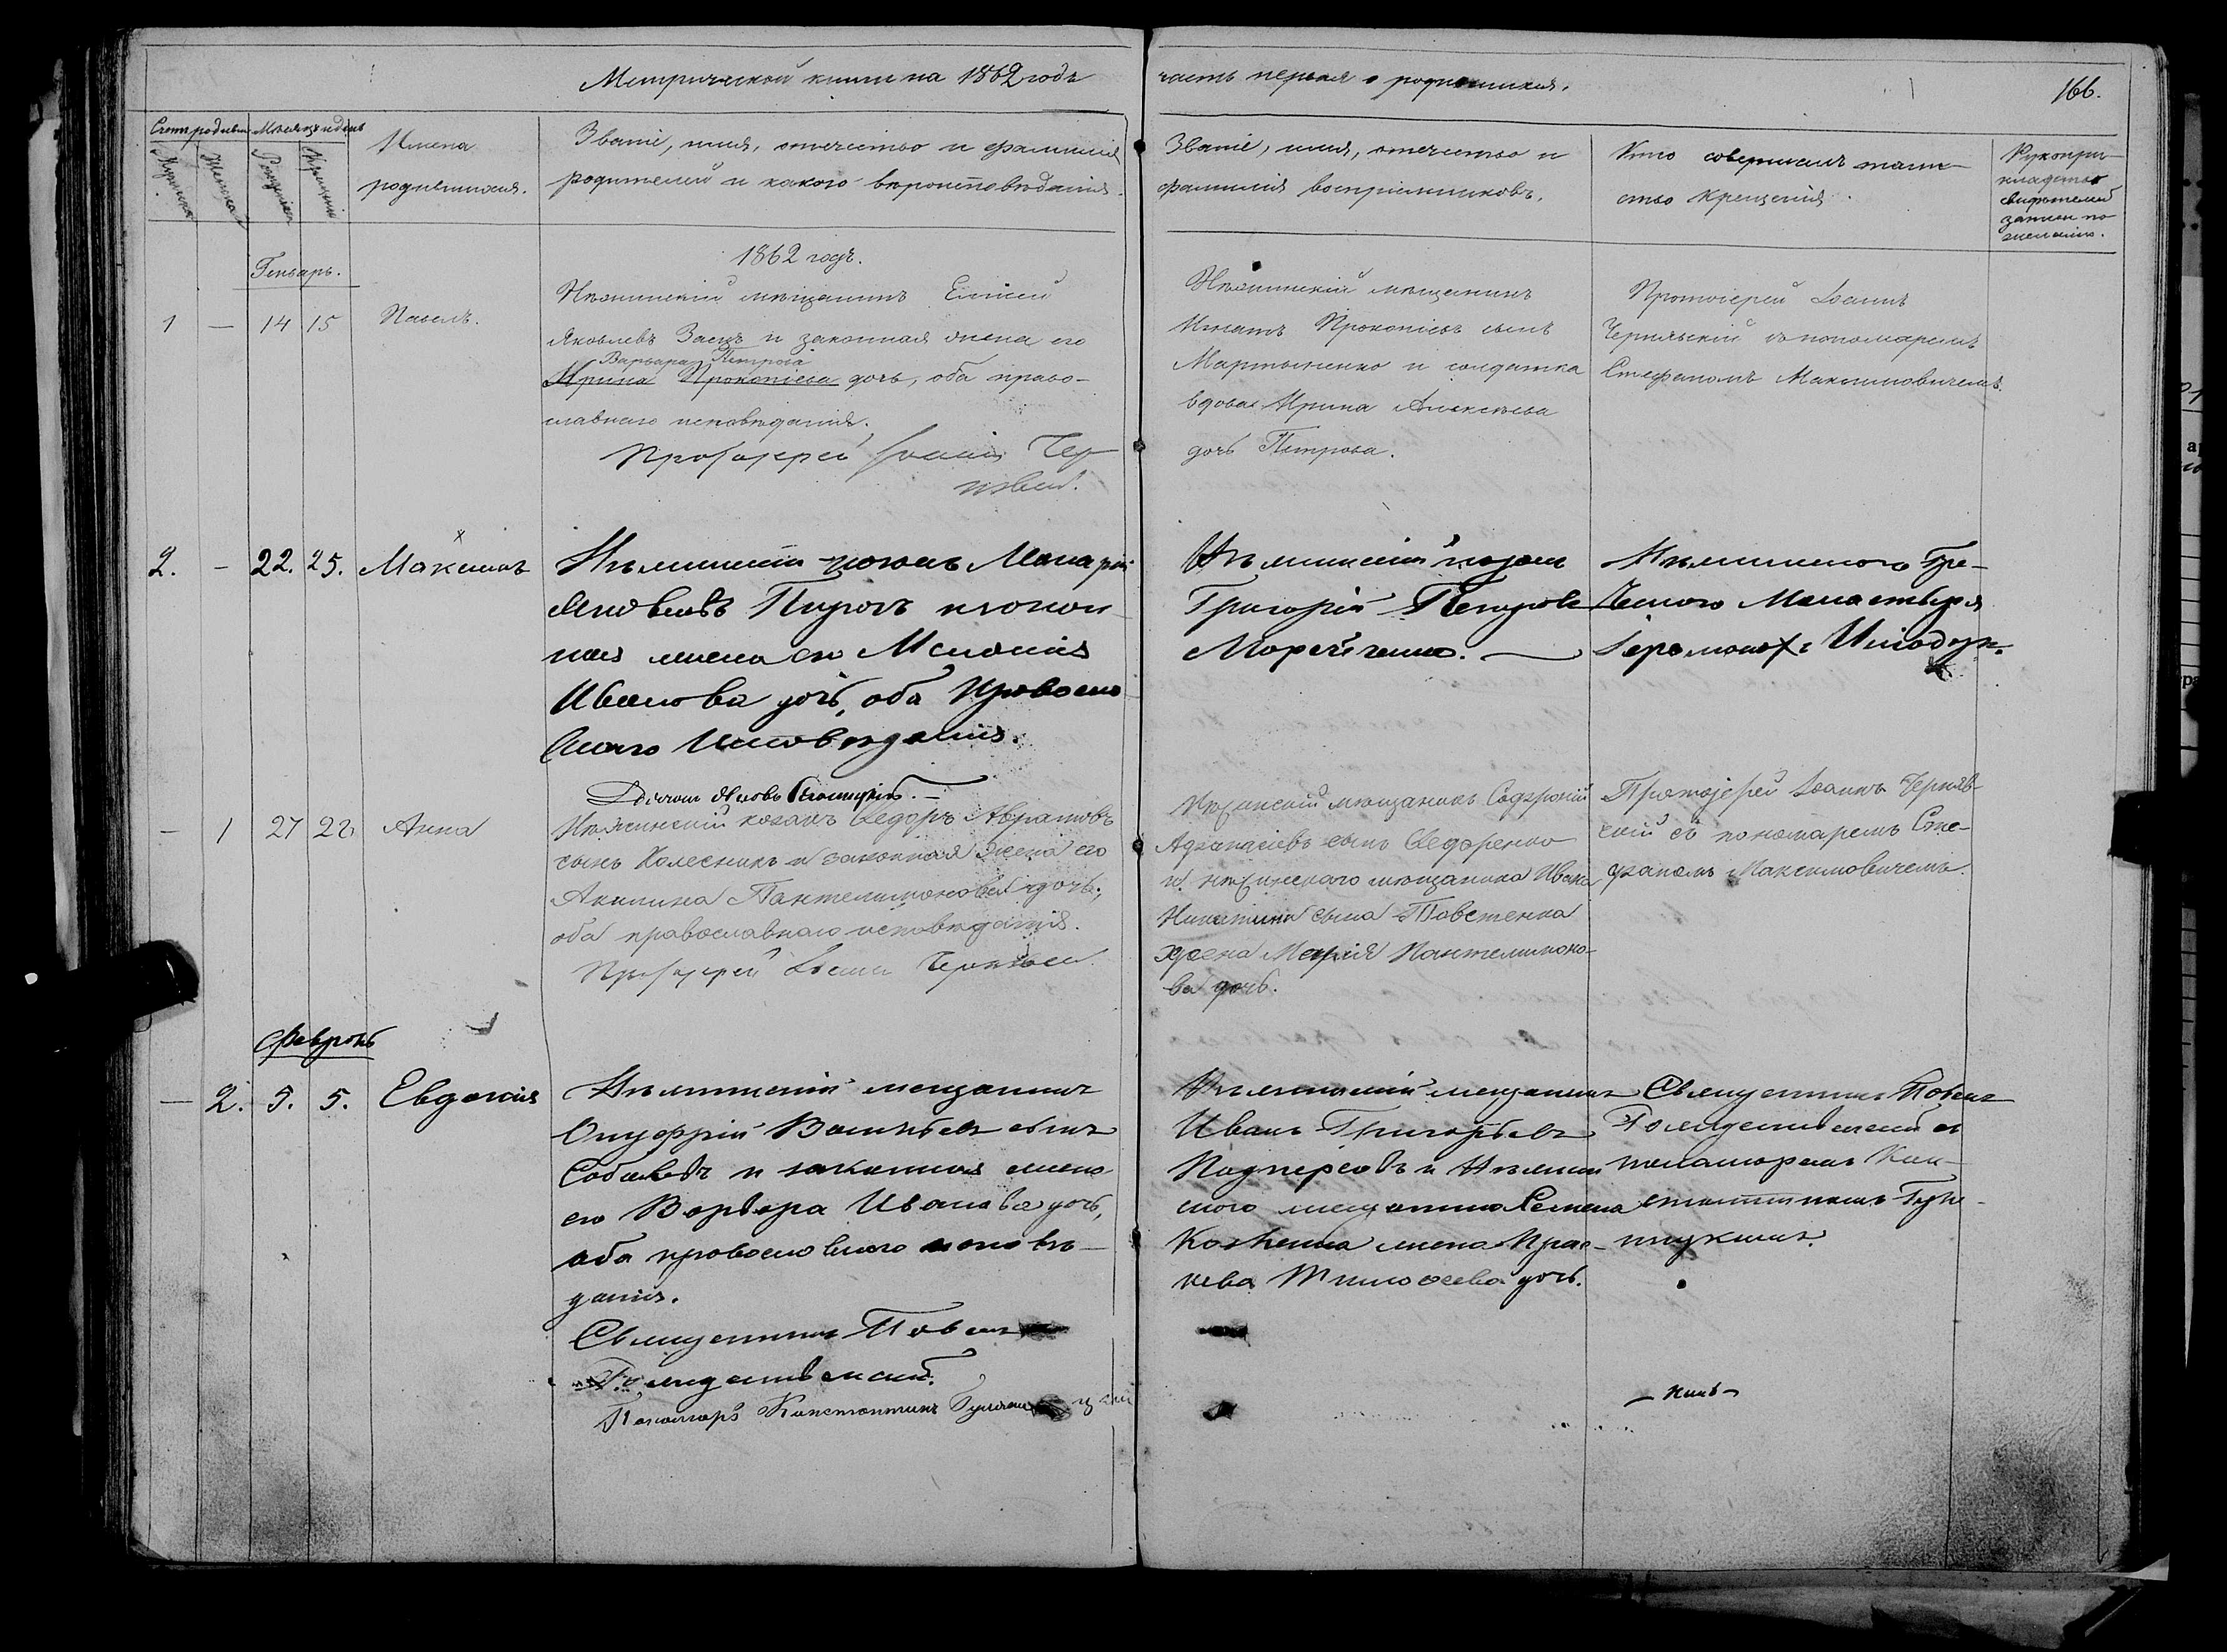 Метрической книги на 1862 годъ
часть первая о родившихся.
166.
Счетъ родивш.
Мѣсяцъ и день
Мужеска
Женска
Рожденія
Крещенія
Имена
родившихся.
Званіе, имя, отечество и фамилія
родителей и какого вѣроисповѣданія.
Званіе, имя, отечество и
фамилія воспріемниковъ.
Кто совершалъ таин-
ство крещенія.
Рукопри-
кладство
свидѣтелей
записи по
желанію.
1862 годъ.
Генварь.
1 — 14 15 Павелъ.
Нѣжинскій мѣщанинъ Елисей
Яковлевъ Заецъ и законная жена его
Варвара Петрова
Ирина Прокопіева дочь, оба право-
славнаго исповѣданія.
Протоіерей Іоаннъ Чер-
нявскій.
Нѣжинскій мѣщанинъ
Игнатъ Прокопіевъ сынъ
Мартыненко и солдатка
вдова Ирина Алексѣева
дочь Петрова.
Протоіерей Іоаннъ
Чернявскій съ пономаремъ
Стефаномъ Максимовичемъ.
2. — 22. 25. Максимъ
Нѣжинскій козакъ Макарій
Яковлевъ Пирогъ и закон-
ная жена его Меланія
Иванова дочь, оба Православ
наго Исповѣданія.
Діаконъ Яковъ
Нѣжинскій козакъ
Григорій Петровъ
Нѣжинского Гре-
ческого Манастыря
Іеромонахъ
— 1 27 28 Анна
Нѣжинскій козакъ Ѳедоръ Аврамовъ
сынъ Колесникъ и законная жена его
Акилина Пантелимонова дочь,
оба православнаго исповѣданія.
Протоіерей Іоаннъ Чернявскій
Нѣжинскій мѣщанинъ Софроній
Афанасіевъ сынъ Ѳедоренко
и нѣжинскаго мѣщанина Ивана
Никитина сына Товстенка
жена Марія Пантелимоно-
ва дочь.
Протоіерей Іоаннъ Черняв-
скій съ пономаремъ Сте-
фаномъ Максимовичемъ.
Февраль
— 2. 5. 5. Евдокія
Нѣжинскій мещанинъ
Онуфрій Васильевъ сынъ
и законная жена
его Варвара Иванова дочь,
оба православного исповѣ-
данія.
Священникъ Павелъ
Рождественскій.
Пономарь Константинъ
Нѣжинскій мещанинъ
Иванъ Григорьевъ
и Нѣжин
ского мещанина Семена
жена Прас-
кева Тимоѳеева дочь.
Священникъ Павелъ
Рождественскій съ
пономаремъ Кон-
стантиномъ